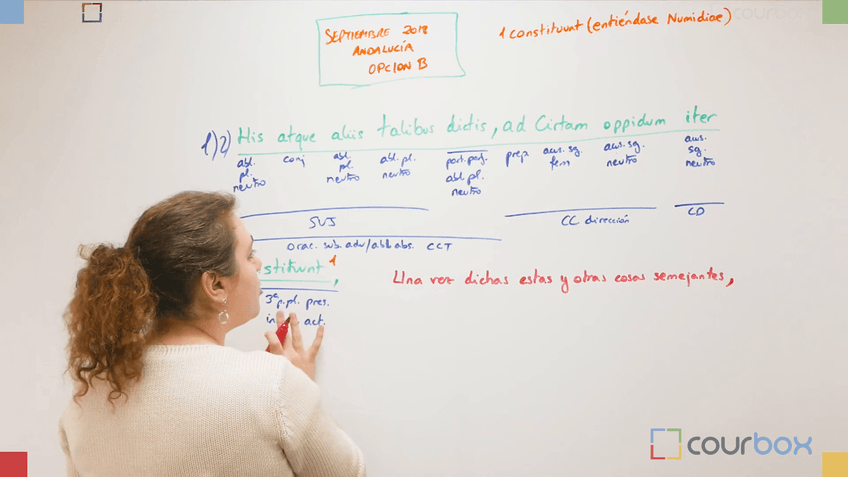 SEPTIEMBRE 2018
ANDALUCÍA
OPCION B
1 constituunt (entiéndase Numidiae)
courbox
1)2) His atque aliis talibus dictis, ad Cirtam oppidum iter
abl. pl. neutro
conj
abl. pl. neutro
abl. pl. neutro
part. perf. abl. pl. neutro
prep
acus. sg. fem
acus. sg. neutro
acus. sg. neutro
SUJ
CC dirección
CD
orac. sub. adv/abl. abs. CCT
stituunt 1,
3ª p. pl. pres.
in act.
Una vez dichas estas y otras cosas semejantes,
courbox